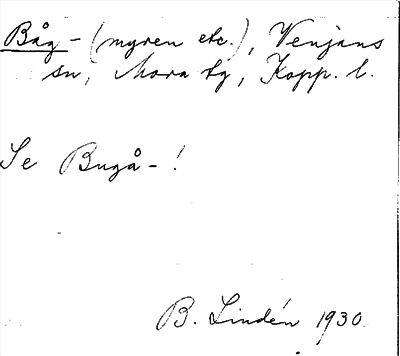 Båg- (myren etc.), Venjans
sn, Mora tg, Kopp. l.
Se Bugå-!
B. Lindén 1930.